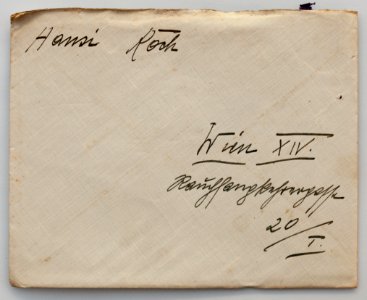 Hansi Koch
Wien XIV.
Rauchfangkehrergasse
20/I.